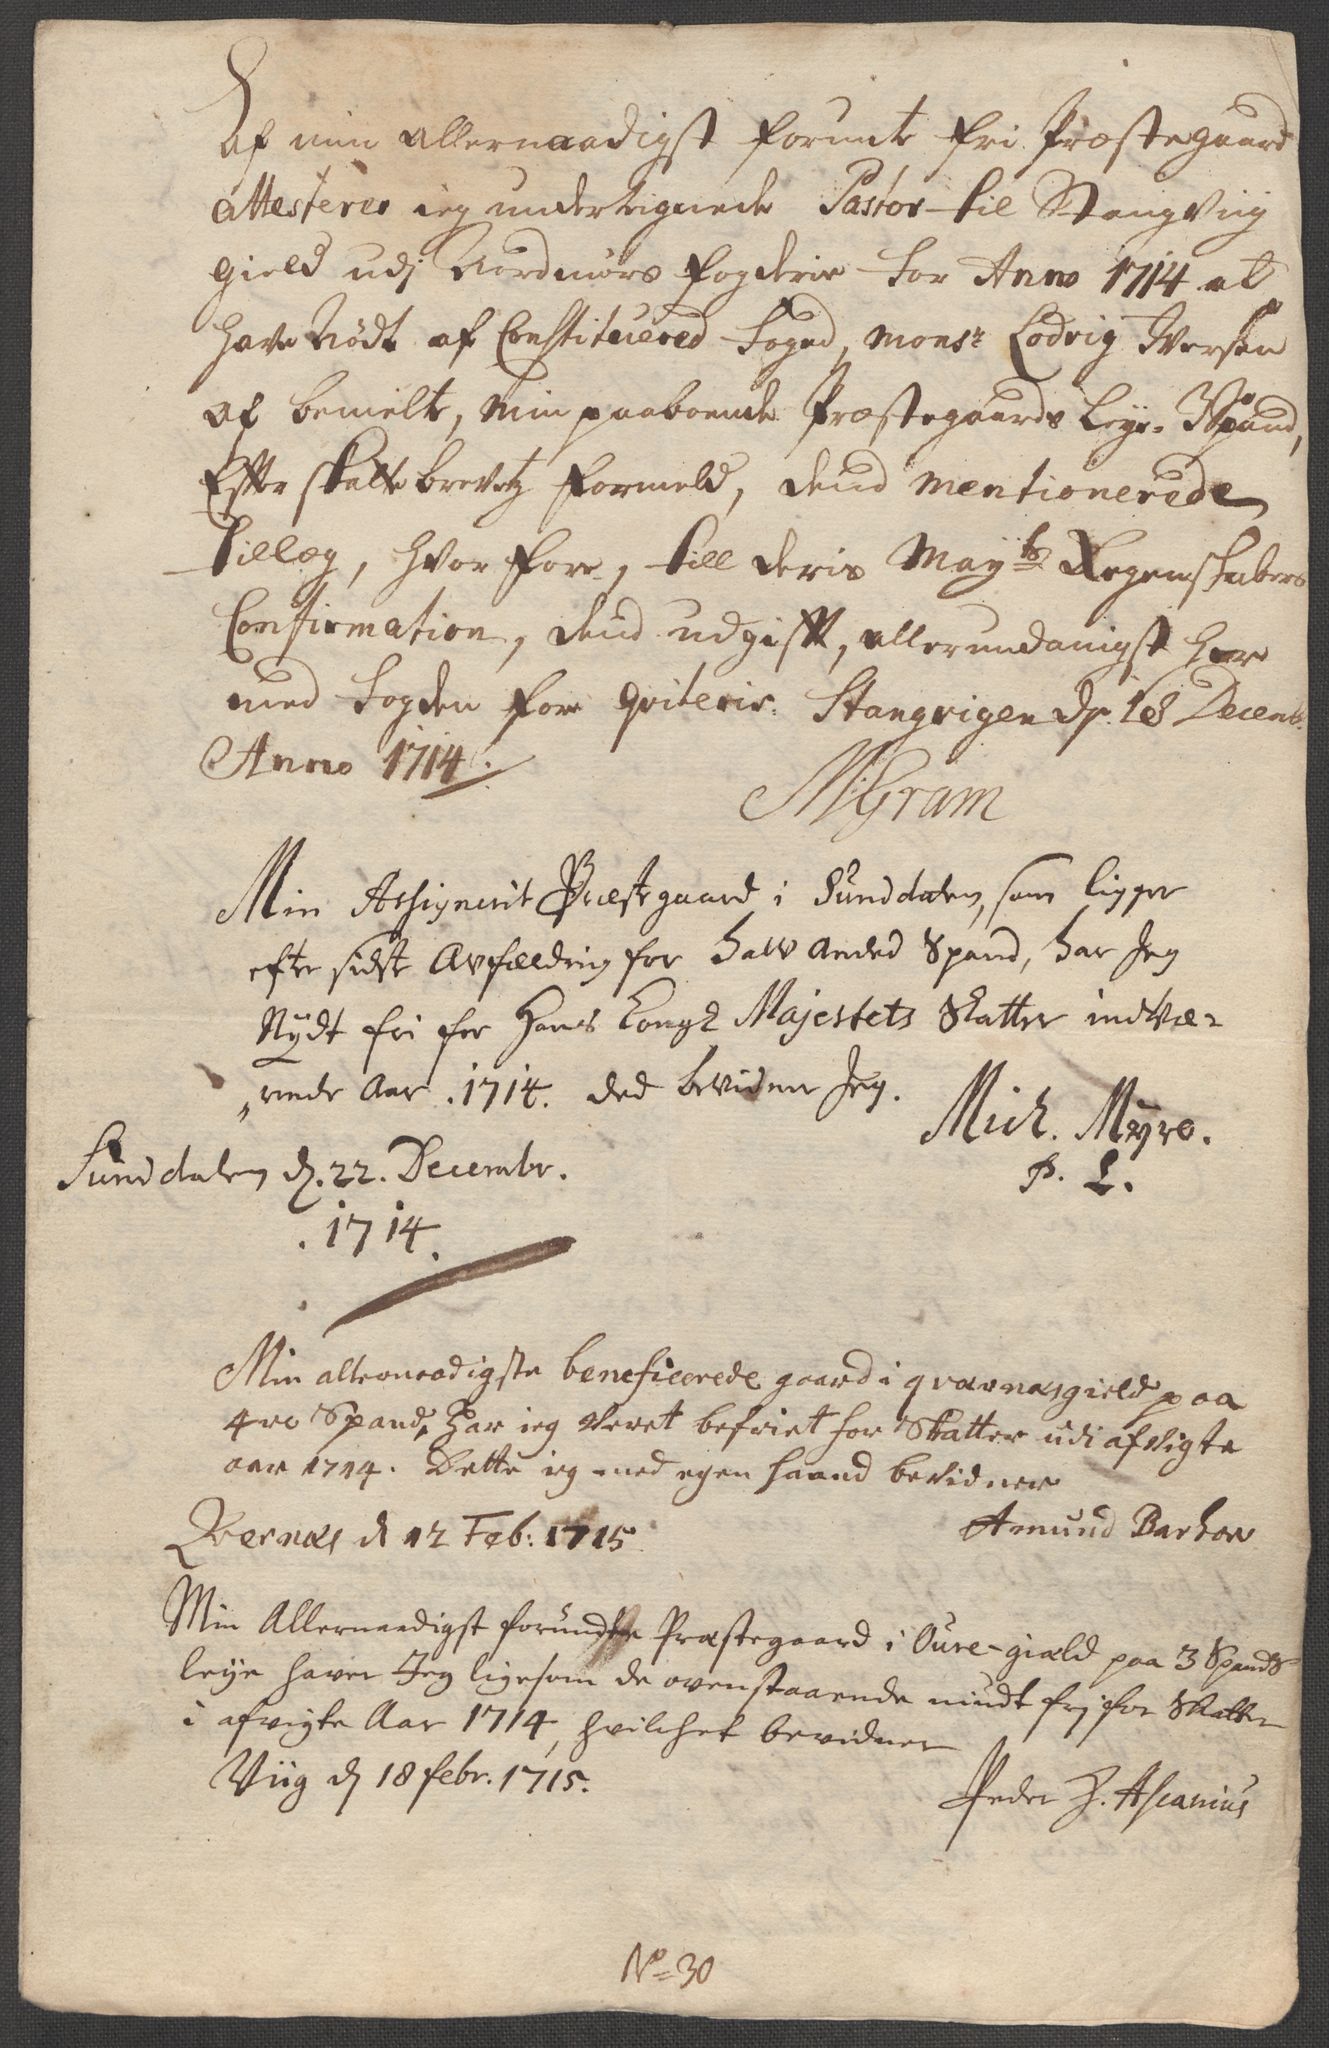 Af min allernaadigst forundte fri Præstegaard
attesterer ieg undertegnede Pastor til Stangviig
gield udj Nordmørs fogderie for Anno 1714 at
have Nødt af Constituered foged, Monsr Lodvig Iversen
af bemelte, Min paaboende Præstegaards Leye. Spand,
Efter skattebrevetz formeld, dend mentionerede
tillæg, hvor fore, till deris Mayts Regenskabers
Confirmation, dend udgifft, allerundanigst her
med fogden fore qviteris. Stangvigen dn. 18 Decemb.
Anno 1714.
MGram
Min Assignerit Præstegaard i Sunddalen, som ligger
efter sidste Avfælding for halv anded Spand, har Jeg
Nydt fri for Hans Kongl Majestets Skatter indvæ-
rende Aar .1714. ded bevidner Jeg.
Mich. Myro.
P. L.
Sunddalen d. 22. Decembr.
.1714.
Min allernaadigste beneficerede gaard i qvernæsgield paa
4re Spand, har ieg veret befriet for Skatter udi afvigte
aar 1714. Dette ieg med egen haand bevidner
Qvernæs d 12 Feb: 1715
Amund Barhow
Min Allernaadigst forundte Præstegaard i Oure-giæld paa 3 Spands
leye haver Jeg ligesom de ovenstaaende niudt frj for Skatter
i afvigte Aar 1714, hvilchet bevidner
Viig d 18 febr. 1715.
Peder H. Ascanius
No 30